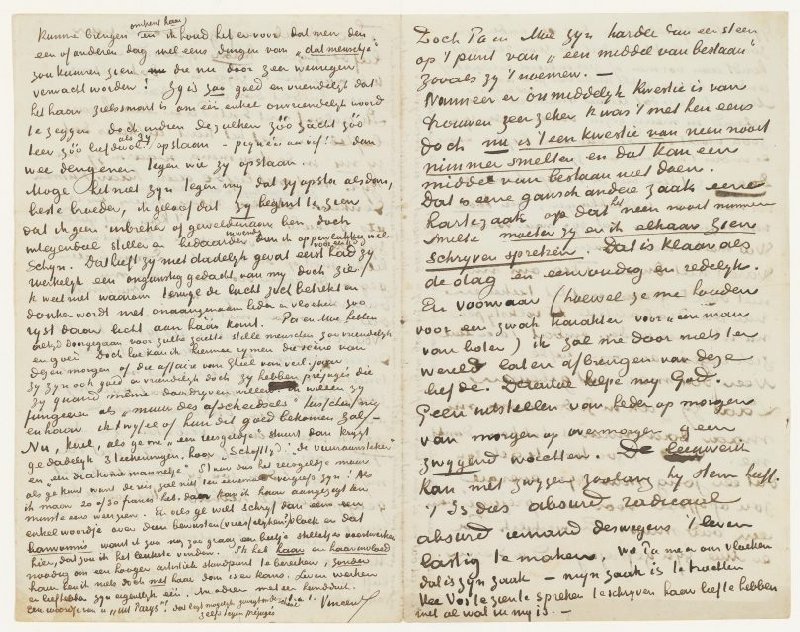 omtrent haar
kunnen brengen en ik houd het er voor dat men den
een of anderen dag wel eens dingen van „dat menschje”
zou kunnen zien die nu door zeer weinigen
verwacht worden! Zy is zoo goed en vriendelyk dat
het haar zielssmart is om één enkel onvriendelyk woord
te zeggen doch indien dezulken zóó zacht zóó
teer zóó liefdevol als zy opstaan – piqués au vif! – dan
wee dengenen tegen wie zy opstaan.
Moge het niet zyn tegen my dat zy opsta alsdan,
beste broeder, ik geloof dat zy begint te zien
dat ik geen indringer of geweldenaar ben doch
integendeel stiller en bedaarder van binnen dan ik oppervlakkig wel
schyn. Dat heeft zy niet dadelyk gevat eerst had zy
werkelyk een ongunstig gedacht van my doch zie
ik weet niet waarom terwyl de lucht zich betrekt en
donker wordt met onaangenaamheden en vloeken zoo
ryst daar licht aan haar kant. Pa en Moe hebben
altyd doorgegaan voor zulke zachte stille menschen zoo vriendelyk
en goed. Doch hoe kan ik hiermee rymen die scène van
dezen morgen of die affaire van Gheel van verl. jaar
Zy zyn ook goed en vriendelyk doch zy hebben préjugés die
zy quand même doordryven willen en willen zy
fungeeren als „muur des afscheidsels” tusschen my
en haar ik twyfel of hun dit goed bekomen zal. –
Nu, kerel, als ge my „een reisgeldje” stuurt dan krygt
ge dadelyk 3 teekeningen, hoor „Schafttyd”, „de vuuraansteker”
en een diakoniemannetje” Stuur dus het reisgeldje maar
als ge kunt want de reis zal niet teenemaal vergeefs zyn! Als
ik maar 20 of 30 francs heb. dan kan ik haar aangezigt ten
minste eens weerzien. En als ge wilt schryf dan eens een
enkel woordje over dien bewusten (vreeselyken) vloek en dat
banvonnis want ik zou nog zoo graag een beetje stilletjes voortwerken
hier, dat zou ik het leukste vinden. Ik heb haar en haar invloed
noodig om een hooger artistiek standpunt te bereiken, zonder
haar ben ik niets doch met haar dan is er kans. Leven werken
en liefhebben zyn eigenlyk één. Nu adieu met een handdruk.
Een woordje van u „uit Parys”! dat legt mogelyk
zelfs tegen préjugés t. à t.
Vincent
Doch Pa en Moe zyn harder dan een steen
op 't punt van „een middel van bestaan”
zooals zy 't noemen. –
Wanneer er onmiddelyk kwestie is van
trouwen zeer zeker ik was 't met hen eens
doch nu is 't een kwestie van neen nooit
nimmer smelten en dat kan een
middel van bestaan niet doen.
Dat is eene gansch andere zaak eene
hartezaak op dat het neen nooit nimmer
smelte moeten zy en ik elkaar zien
schryven spreken. Dat is klaar als
de dag en eenvoudig en redelyk.
En voorwaar (hoewel ze me houden
voor een zwak karakter voor „een man
van boter”) ik zal me door niets ter
wereld laten afbrengen van deze
liefde. Daartoe helpe my God.
Geen uitstellen van heden op morgen
van morgen op overmorgen geen
zwygend wachten. De leeuwerik
kan niet zwygen zoolang hy stem heeft.
't Is dus absurd radicaal
absurd iemand deswegens 't leven
lastig te maken, wil Pa me er om vloeken
dat is zyn zaak – myn zaak is te trachten
Kee Vos te zien te spreken te schryven haar lief te hebben
met al wat in my is. –